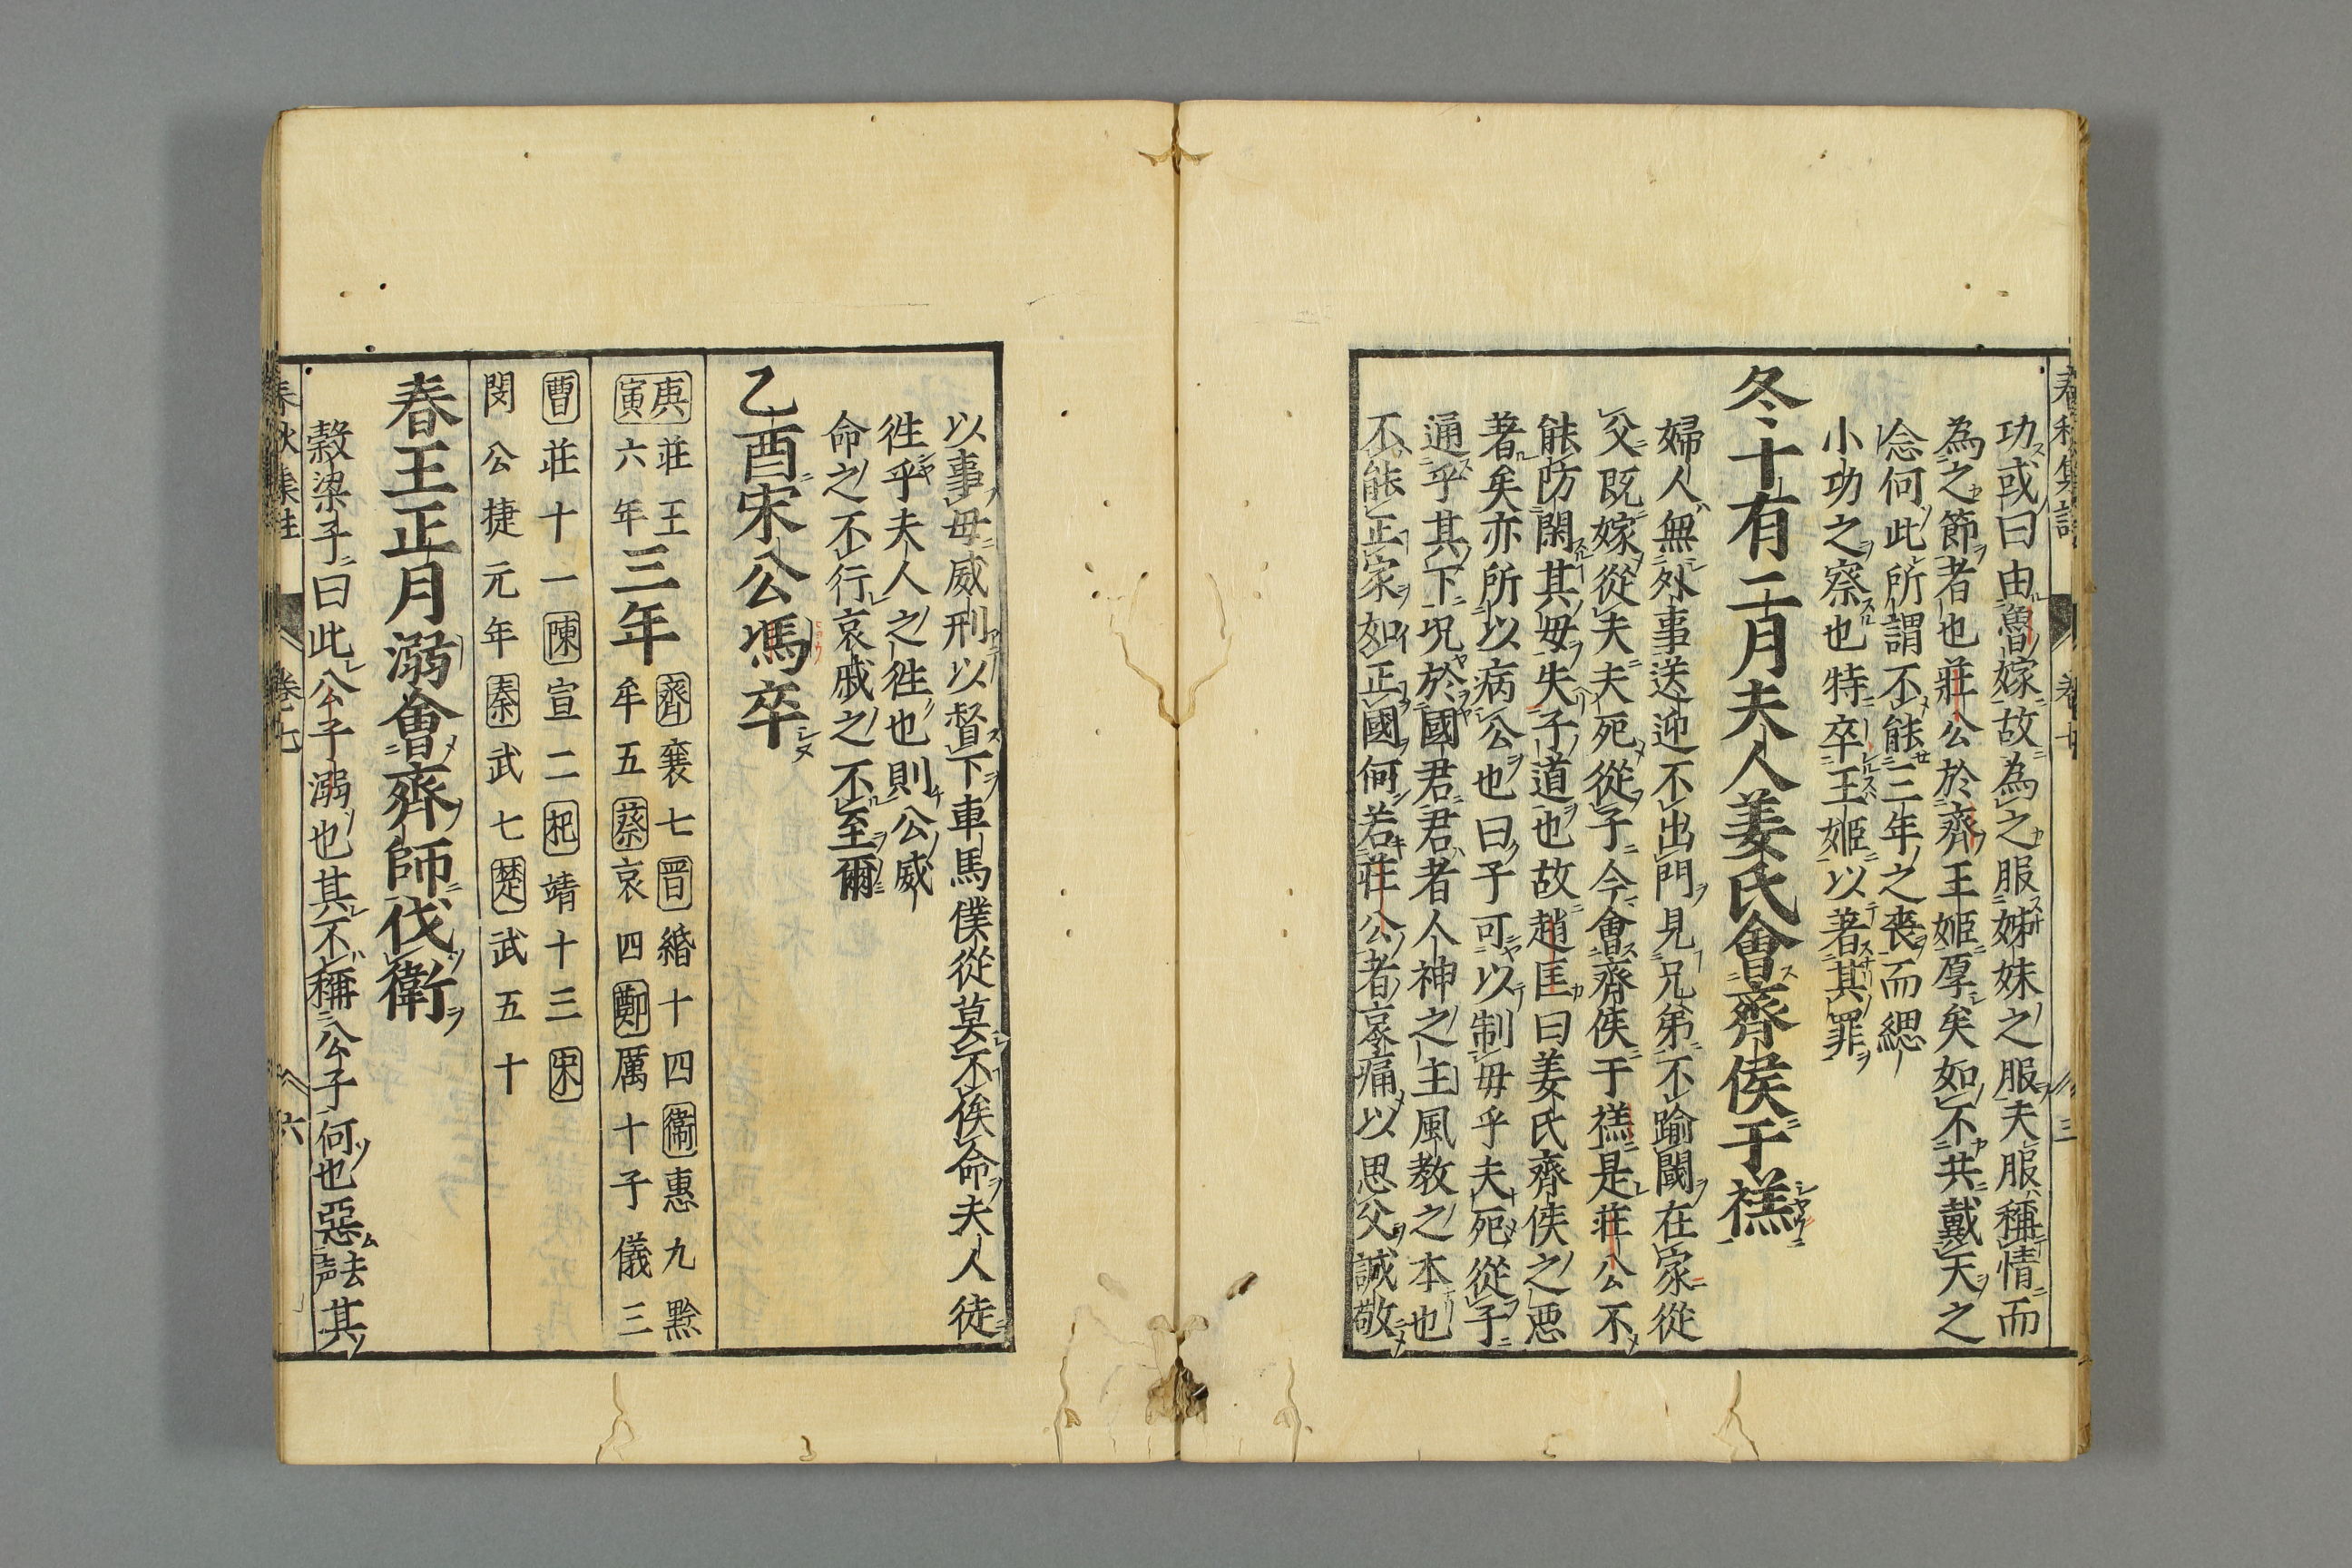 功或曰由魯嫁故為之服姊妹之服夫服稱情而
為之節者也莊公於齊王姬厚矣如不共戴天之
念何此所謂不能三年之喪而緦
小功之察也特卒王姬以著其罪
冬十有二月夫人姜氏會齊侯于禚
婦人無外事送迎不出門見兄弟不踰閾在家從
父既嫁從夫夫死從子今會齊侯于禚是莊公不
能防閑其母失子道也故趙匡曰姜氏齊侯之惡
著矣亦所以病公也曰子可以制母乎夫死從子
通乎其下况於國君君者人神之主風教之本也
不能正家如正國何若莊公者哀痛以思父誠敬
以事母威刑以督下車馬僕從莫不俟命夫人徒
徃乎夫人之徃也則公威
命之不行哀戚之不至爾
乙酉宋公馮卒
庚寅 莊王六年 三年 齊襄七晉緡十四衞惠九黔
牟五蔡哀四鄭厲十子儀三
曹莊十一陳宣二杞靖十三宋
閔公捷元年秦武七楚武五十
春王正月溺會齊師伐衛
穀梁子曰此公子溺也其不稱公子何也惡去声其
春秋集註 卷七 六